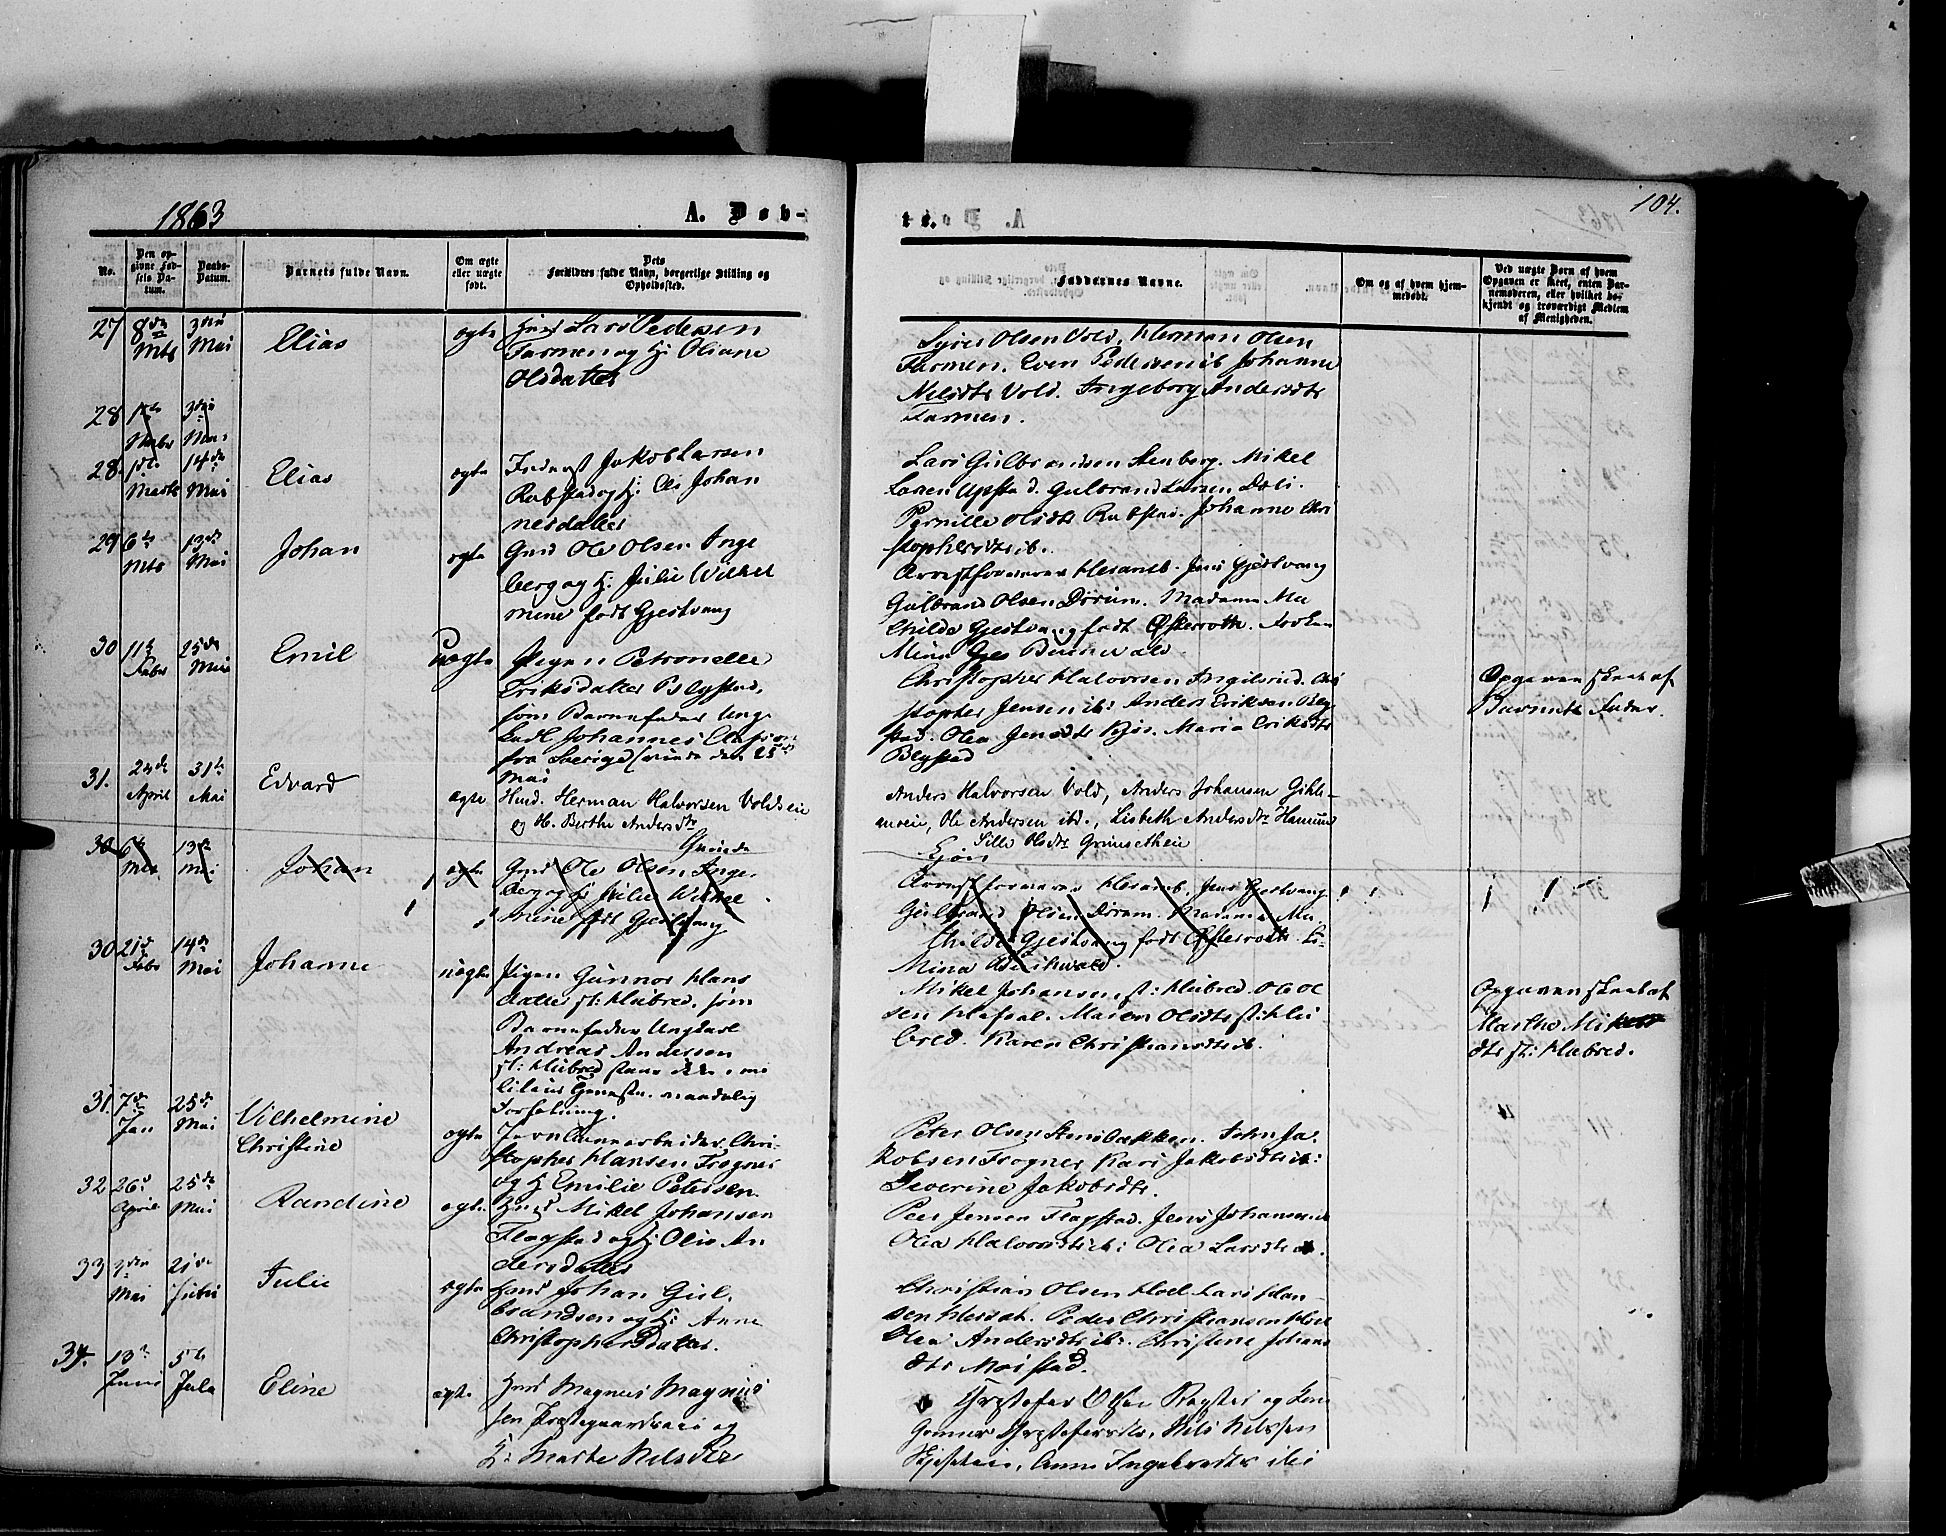 1863
A. Døb-
te.
104.
No.
Den op-
givne Fød-
sels Da-
tum.
Daabs-
Datum.
Barnets fulde Navn.
Om ægte
eller uægte
født.
Dets
Forældres fulde Navn, borgerlige Stilling og
Opholdssted.
Faddernes Navne.
Om og af hvem hjem-
medøbt.
Ved uægte Børn af hvem
Opgaven er skeet, enten Bar-
nemoderen, eller hvilket be-
kjendt og troværdigt Medlem
af Menigheden.
27 8de Mts 3die Mai Elias ægte Lars Pedersen
Farmen og H: Oliane
Olsdatter
Olsen Vold, Herman Olsen
Farmen. Even Pedersen ib Johanne
Nilsdtr Vold. Ingeborg Andersdtr
Farmen.
28 3die
28. 14de Mai Elias ægte Inderst Jakob Larsen
Rabstad og H: Johan
nesdatter
Lars Gulbrandsen Stenberg. Mikel
Larsen Opstad. Gulbrand Larsen
Pernille Olsdtr Rabstad. Johanne Chri
stophersdtr ib.
29 6te Mts 13de Mai Johan ægte Gmd Ole Olsen Inge
berg og H: Julie Wilhel
mine født Gjestvang
Arrestforvarer Hesamb. Jens Gjestvang
Gulbrand Olsen Dørum. Madame Ma
thilde Gjestvang født Østerroth. Frøken
Mina
30 11te Febr 25de Mai Emil Uægte Pigen Petronelle
Eriksdatter Blystad,
som Barnefader Ung-
karl Johannes
fra Sverige
Mai
Christopher Halvorsen Ingilsrud. Chri
stopher Jensen ib: Anders Eriksen Bly
stad. Olea Jensdtr Maria Eriksdtr
Blystad
Opgaven skeet af
Barnets Fader.
31. 2den April 31te Mai Edvard ægte Husm. Herman Halvorsen Voldseie
og H. Berthe Andersdtr
Anders Halvorsen Vold, Anders Johansen Gihle-
mseie, Ole Andersen ibd., Lisbeth Andersdtr
Sille Olsdtr Grimsetheie
30 6te Mts 13de Mai Johan ægte Gmd Ole Olsen Inge-
berg og H: Julie Wilhel
mine født Gjestvang
Arrestforvarer Hesamb. Jens Gjestvang
Gulbrand Olsen Dørum. Madame Ma-
thilde Gjestvang født Østerroth.
Mina
30 21de Febr 14de Mai Johanne uægte Pigen Gunnor Hans
datter st: Hubred, som
Barnefader Ungkarl
Andreas Andersen
st: Hubred
maanedlig
Mikel Johansen st: Hubred. Ole Ol
sen Maren Olsdtr st: Hu
bred. Karen Christiansdtr ib.
Opgaven skeet af
Marthe Mikels
dtr st: Hubred.
31. 7de Jan 25de Mai Vilhelmine
Christine ægte Jernbanearbeider Chri-
stopher Hansen Frogner
og H Emilie Petersen
Peter Olsen Stensbakken. John Ja-
kobsen Frogner Kari Jakobsdtr ib:
Severine Jakobsdtr.
32 26de April 25de Mai Randine ægte Mikel Johansen
Flagstad og H: Olia An
dersdatter
Peer Jensen Flagstad. Jens Johansen ib
Olea Halvorsdtr ib: Olea Larsdtr ib.
33 3die Mai 21de Julie ægte Johan Gul-
brandsen og H: Anne
Christophersdatter.
Christian Olsen Hoel Lars Han-
sen Peder Christiansen
Olea Andersdtr ib. Christine Johans
dtr Moistad.
34. 13de Juni 5te Eline ægte Magnus Magnus
sen Præstegaardseie og
H: Marte Nilsdtr
Olsen og
Nils Nilssen
Anne Ingebretsdtr